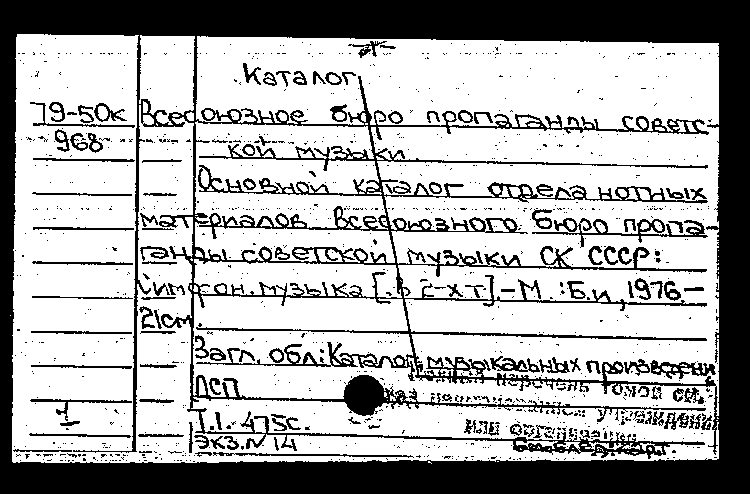 Каталог
79-50к Всесоюзное бюро пропаганды советс-
968 кой музыки
Основной каталог отдела нотных
материалов Всесоюзного бюро пропа-
ганды советской музыки СК СССР:
Симфон. музыка [.В 2-х т]. - М. : Б.и, 1976. -
21см.
Загл. обл.: Каталог музыкальных произведени
ДСП Полный перечень томов см.
под наименованием учреждения
1 Т.1. - 475с. или организации
экз. N 14 См. след. карт.